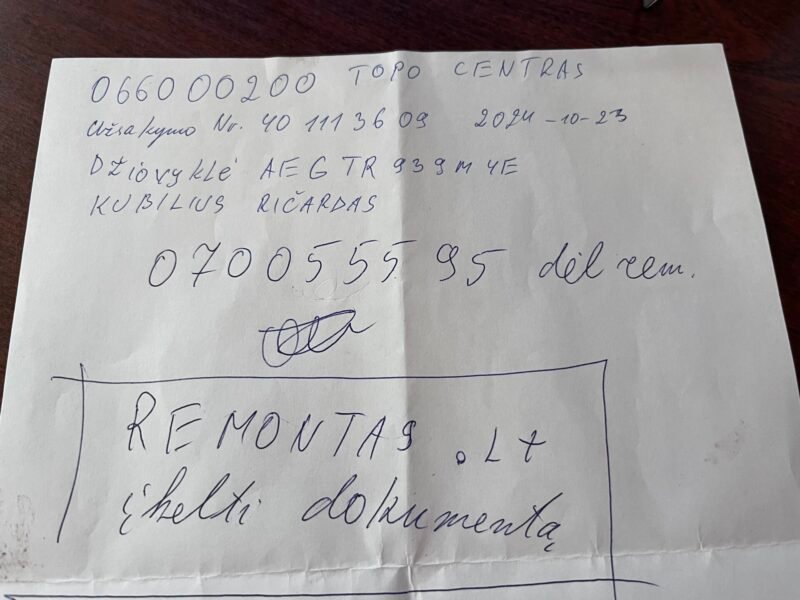 066000200 TOPO CENTRAS
Užsakymo Nr. 40 111 36 09 2024-10-23
Džiovyklė AEG TR 939M4E
KUBILIUS RIČARDAS
0700 55595 dėl rem.
REMONTAS.Lt
įkelti dokumentą